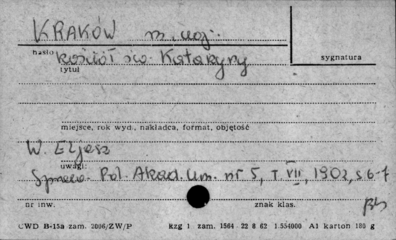 KRAKÓW m. woj.
hasło kościół św. Katarzyny
sygnatura
tytuł
miejsce, rok wyd., nakładca, format, objętość
W. Eljasz
uwagi
Spraw. Pol. Akad. Um. nr 5, T. VII, 1902, s. 6-7
nr inw. znak klas.
CWD B-15a zam. 2006/ZW/P kzg 1 zam. 1564 22 8 62 1.554000 A1 karton 180 g